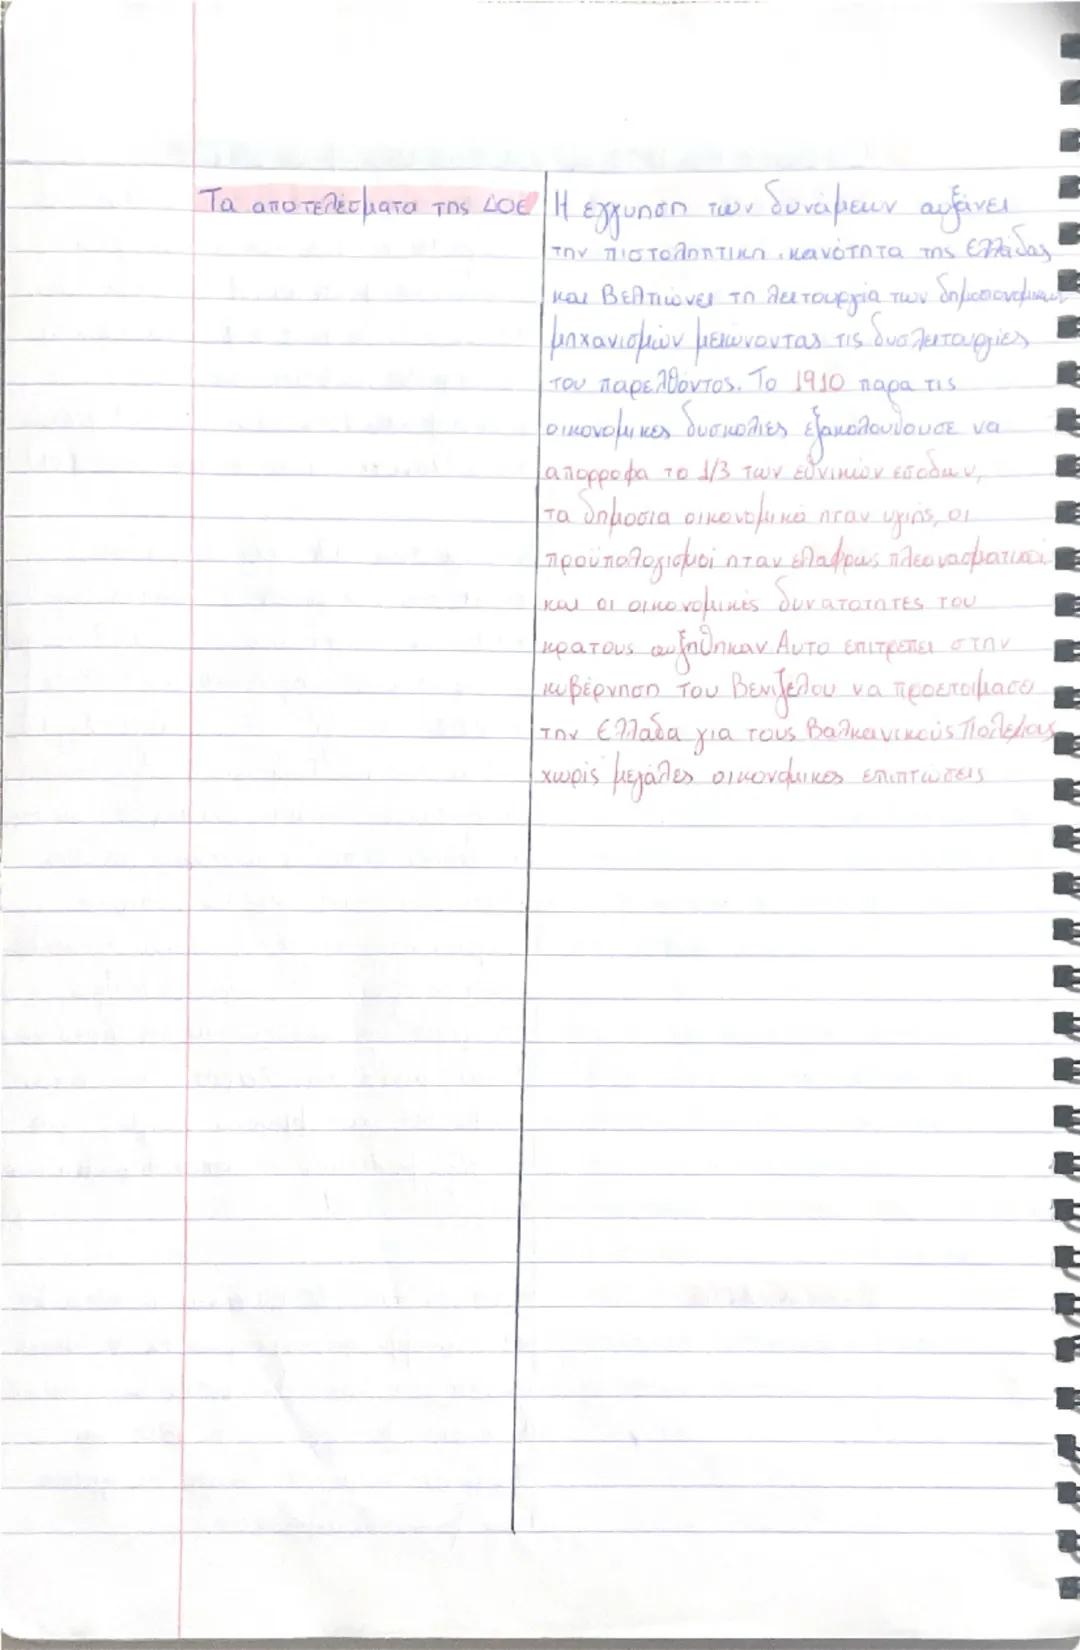 Τα αποτελέσματα της ΔΟΕ
Η εγγυηση των δυνάμεων αυξάνει
την πιστοληπτικη ικανότητα της Ελλάδας
και βελτιώνει τη λειτουργία των δημοσιονομικων
μηχανισμών μειώνοντας τις δυσλειτουργίες
του παρελθόντος. Το 1910 παρα τις
οικονομικες δυσκολίες εξακολουθουσε να
απορροφα το 1/3 των εθνικών εσοδων,
τα δημοσια οικονομικά ηταν υγιής, οι
προϋπολογισμοί ηταν ελαφρως πλεονασματικοί
και οι οικονομικές δυνατοτητες του
κρατους αυξηθηκαν Αυτο επιτρεπει στην
κυβέρνηση του Βενιζελου να προετοιμασει
την Ελλαδα για τους Βαλκανικούς Πολέμους
χωρίς μεγάλες οικονομικες επιπτώσεις